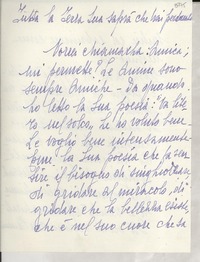 Tutta la Terra Lei saprà che mai
Vorrei chiamarla Amica;
mi permette? Le anime sono
sempre amiche - Da quando
ho letto la sua poesia:
Le ho voluto bene.
Le voglio bene intensamente
la sua poesia
il bisogno di singhiozzare,
di gridare al miracolo, di
gridare che la bellezza esiste,
che è nel suo cuore che